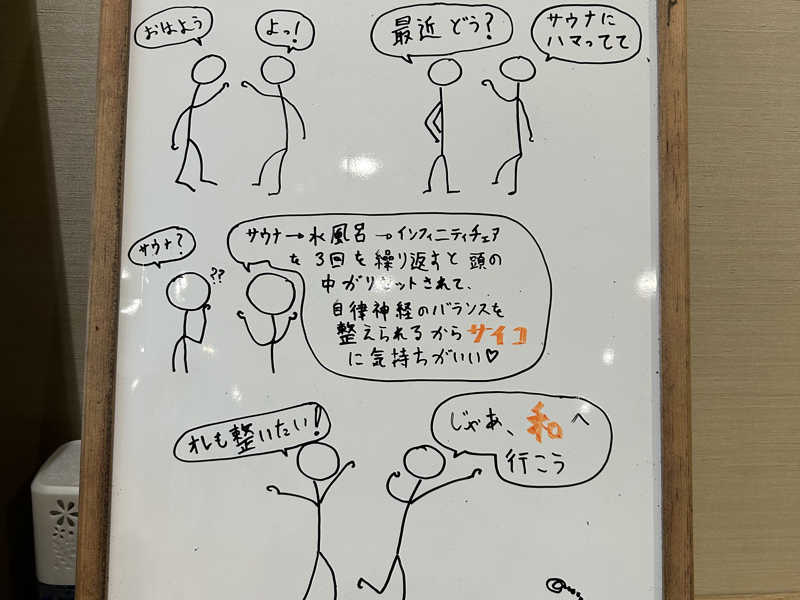 おはよう
よっ!
最近どう?
サウナに
ハマってて
サウナ?
??
サウナ→水風呂→インフィニティチェア
を3回を繰り返すと頭の
中がリセットされて、
自律神経のバランスを
整えられるからサイコ
に気持ちがいい♡
オレも整いたい!
じゃあ、和へ
行こう